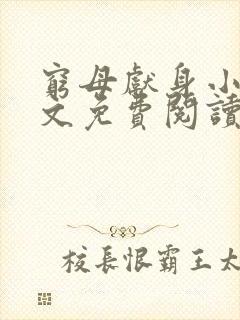 窮母獻身小
文免費閱讀
校長恨霸王太